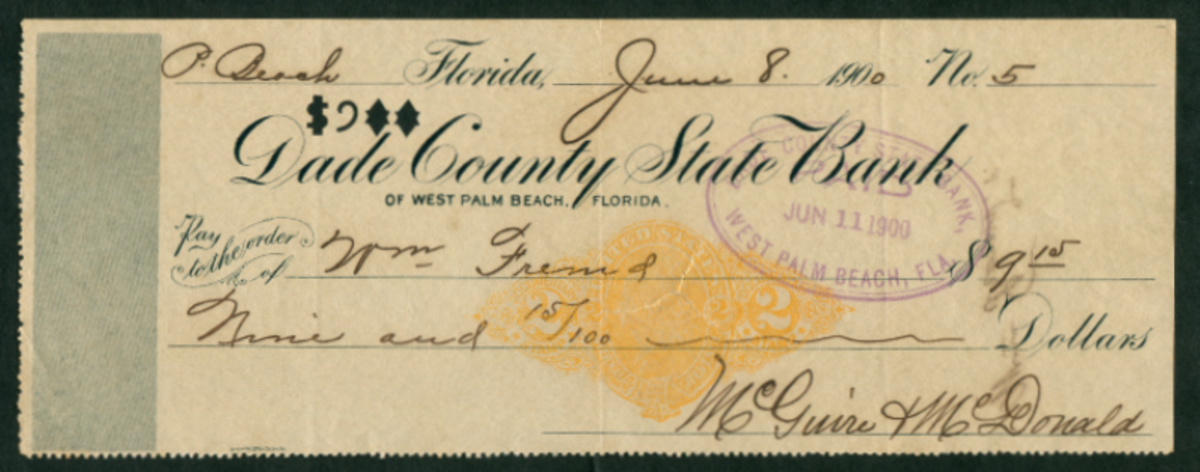 P. Beach Florida, June 8. 1900 No. 5
$9♦♦
Dade County State Bank
OF WEST PALM BEACH, FLORIDA.
Pay to the order of Wm Fremd $ 9 15
Nine and 15/100 Dollars
McGuire & McDonald
COUNTY STATE BANK,
PAID
JUN 11 1900
WEST PALM BEACH, FLA.
2 2